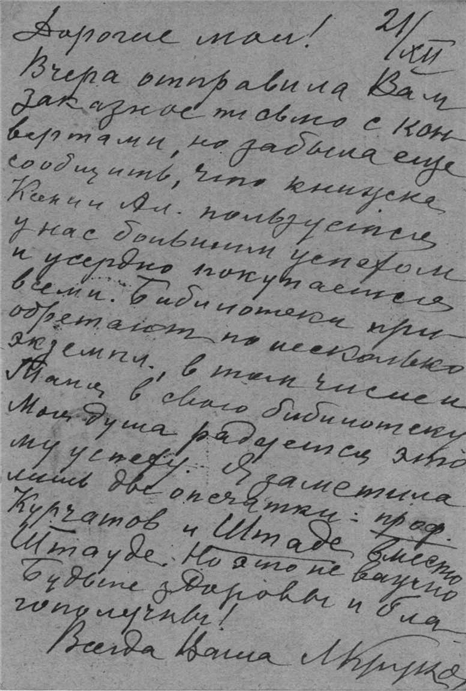 Дорогие мои! 21/XII
Вчера отправила Вам
заказное письмо с кон-
вертами, но забыла еще
сообщить, что книжка
Ксении Ал. пользуется
у нас большим успехом
и усердно покупается
всеми. Библиотеки при-
обретают по несколько
экземпл., в том числе и
Таня в свою библиотеку
Моя душа радуется это
му успеху. Я заметила
лишь две опечатки: проф.
Курчатов и Штаде вместо
Штауде. Но это не важно
Будьте здоровы и бла-
гополучны!
Всегда Ваша